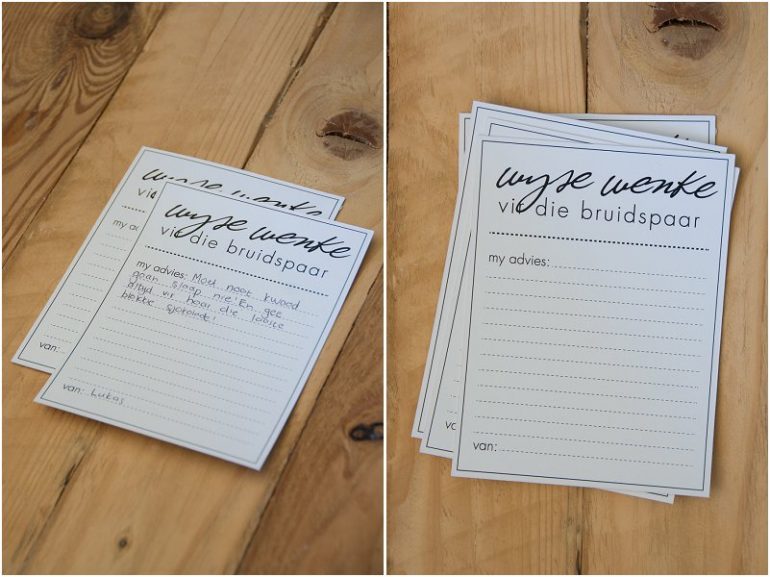 wyse wenke
vi
my ad
van:
wyse wenke
vir die bruidspaar
my advies: Moet nooit kwaad
gaan slaap nie! En gee
altyd vir haar die laaste
blokkie sjokolade!
van: Lukas
wyse wenke
vir die bruidspaar
my advies:
van:
va